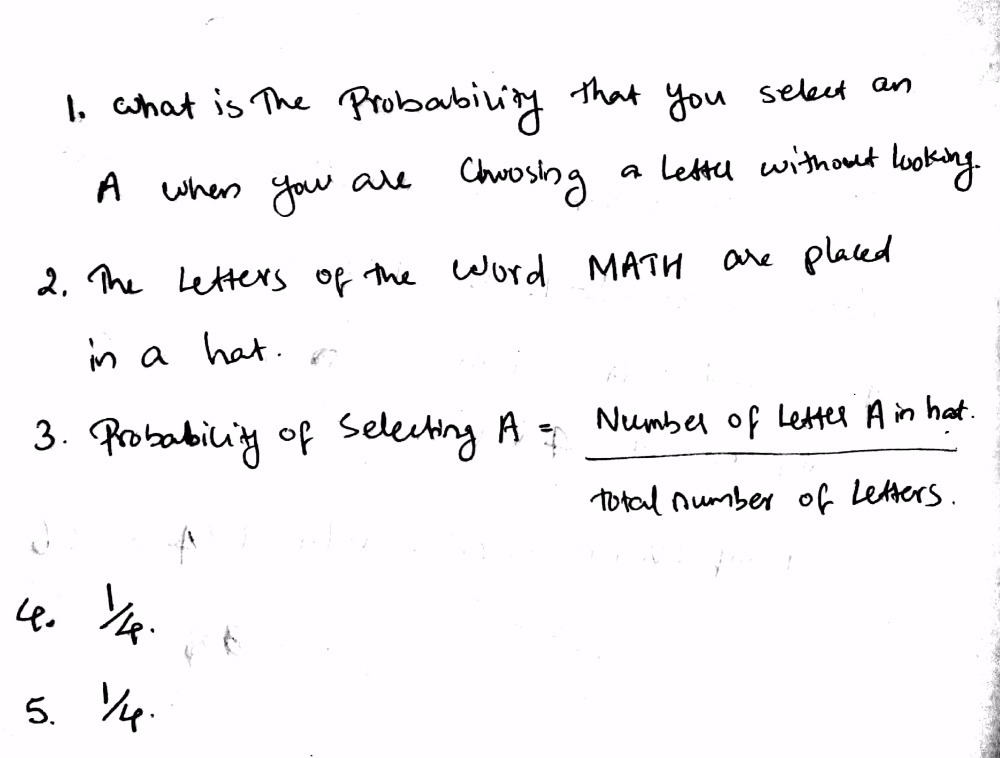 1. What is The Probability that you select an
A when you are Choosing a Letter without looking.
2. The Letters of the Word MATH are placed
in a hat.
3. Probability of Selecting A = Number of Letter A in hat.
total number of Letters.
4. 1/4.
5. 1/4.